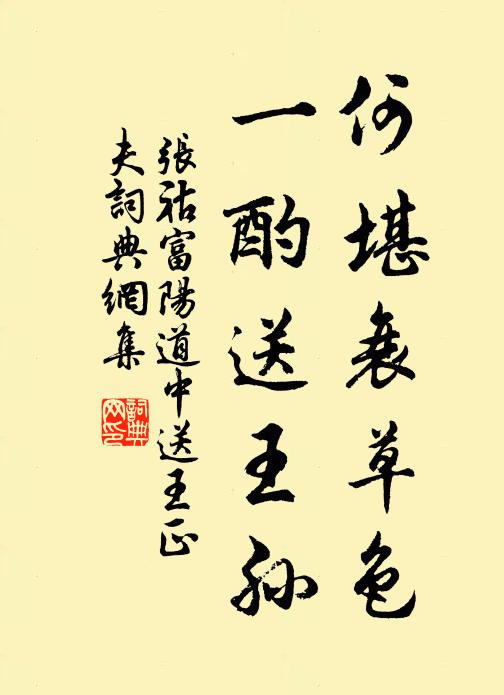 何堪衰草色
一酌送王孫
張祜富陽道中送王正
夫詞典網集
詞典
网印